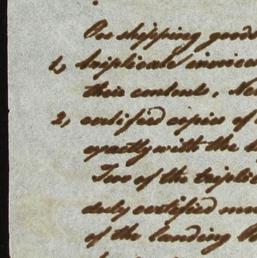 For shipping goods
1, triplicate invoices
their contents. Ne
2, certified copies of
exactly with the
Two of the triplic
duly certified mu
of the landing